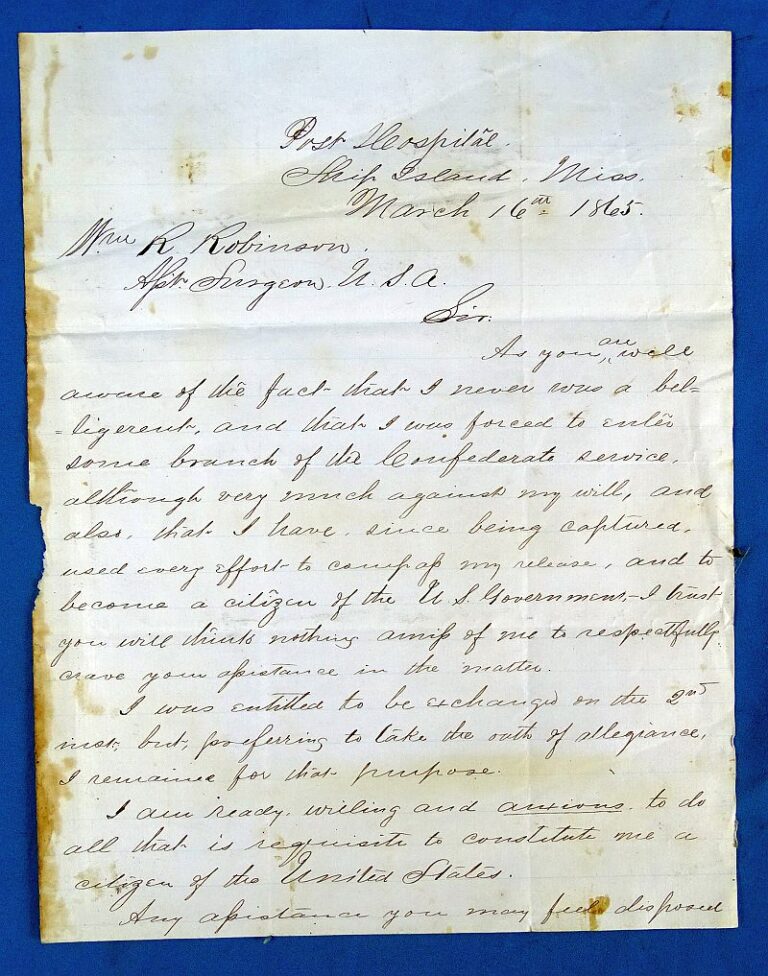 Post Hospital.
Ship Island, Miss.
March 16th 1865.
Wm R. Robinson.
Asst. Surgeon. U. S. A.
Sir.
As you are well
aware of the fact that I never was a bel-
-ligerent, and that I was forced to enter
some branch of the Confederate service,
although very much against my will, and
also, that I have, since being captured,
used every effort to compass my release, and to
become a citizen of the U. S. Government,- I trust
you will think nothing amiss of me to respectfully
crave your assistance in the matter.
I was entitled to be exchanged on the 2nd
inst, but, preferring to take the oath of allegiance,
I remained for that purpose.
I am ready, willing and anxious to do
all that is requisite to constitute me a
citizen of the United States.
Any assistance you may feel disposed